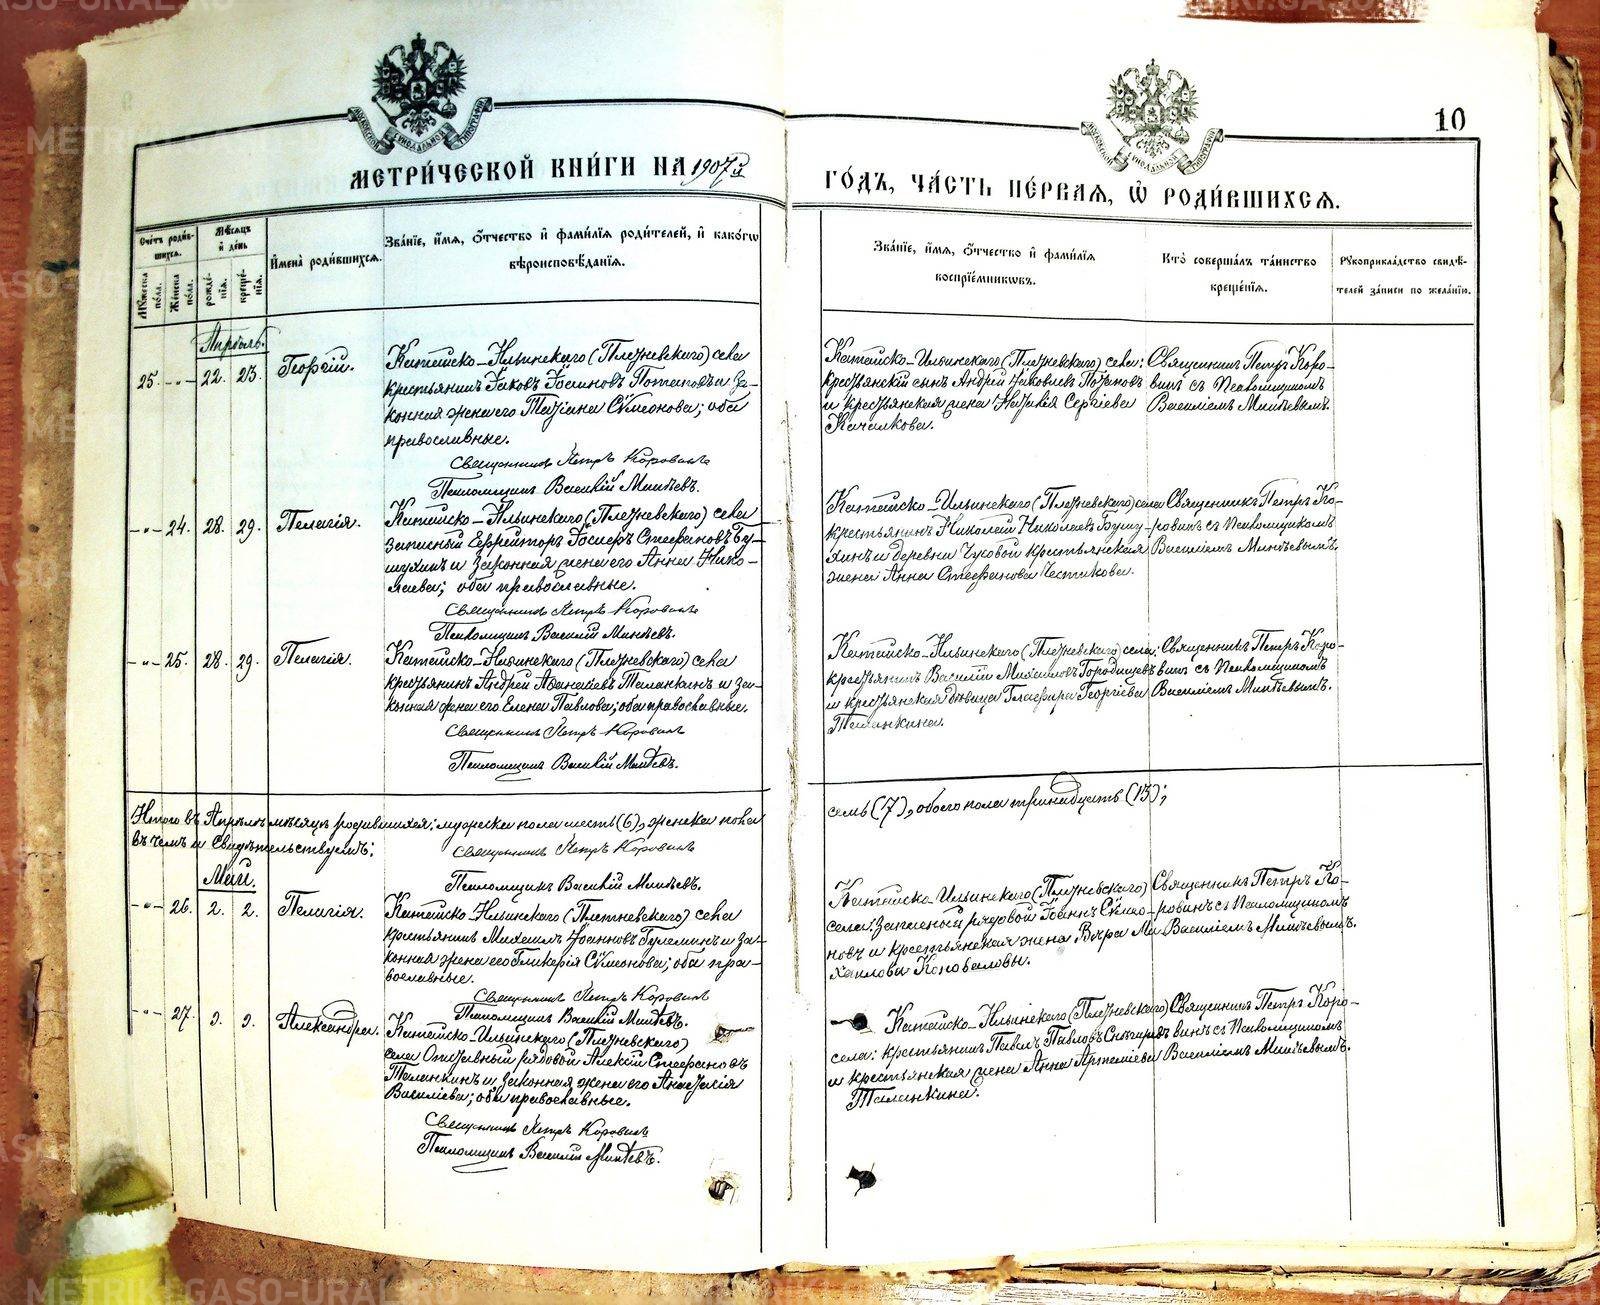 METRIKI.GASO-URAL.RU
10
МЕТРИ́ЧЕСКОЙ КНИ́ГИ НА 1907й
ГО́ДЪ, ЧА́СТЬ ПЕ́РВАЯ, Ѽ РОДИ́ВШИХСЯ.
Сче́тъ роди́в-
шихся.
Мꙋ́жеска по́ла.
Же́нска по́ла.
Мѣ́сяцъ
и҆ де́нь
рожде́-
нїѧ.
креще́-
нїѧ.
И҆мена̀ роди́вшихся.
Зва́нїе, и҆́мя, ѻ҆́тчество и҆ фами́лїя роди́телей, и҆ како́гѡ
вѣроисповѣ́данїя.
Зва́нїе, и҆́мя, ѻ҆́тчество и҆ фами́лїя
воспрїе́мникѡвъ.
Кто̀ соверша́лъ та́инство
креще́нїя.
Рꙋкоприкла́дство свидѣ́-
телей за́писи по жела́нїю.
Апрѣль.
25. - „ - 22. 23. Георгій.
Катайско-Ильинскаго (Плетневскаго) села
крестьянинъ Іаковъ Іоанновъ Потаповъ и за-
конная жена его Татіана Сѵмеонова; оба
православные.
Священникъ Петръ Коровинъ
Псаломщикъ Василій Минѣевъ.
Катайско-Ильинскаго (Плетневскаго) села:
крестьянскій сынъ Андрей Іаковлевъ Потаповъ
и крестьянская жена Наталія Сергіева
Качалкова.
Священникъ Петръ Коро-
винъ съ псаломщикомъ
Василіемъ Минѣевымъ.
- „ - 24. 28. 29. Пелагія.
Катайско-Ильинскаго (Плетневскаго) села
запасный ефрейторъ Іосифъ Стефановъ Бу-
шухинъ и законная жена его Анна Нико-
лаева; оба православные.
Священникъ Петръ Коровинъ
Псаломщикъ Василій Минѣевъ.
Катайско-Ильинскаго (Плетневскаго) села
крестьянинъ Николай Николаевъ Бушу-
хинъ и деревни Чусовой крестьянская
жена Анна Стефанова
Священникъ Петръ Ко-
ровинъ съ псаломщикомъ
Василіемъ Минѣевымъ.
- „ - 25. 28. 29. Пелагія.
Катайско-Ильинскаго (Плетневскаго) села
крестьянинъ Андрей Аѳанасіевъ Таланкинъ и за-
конная жена его Елена Павлова; оба православные.
Священникъ Петръ Коровинъ
Псаломщикъ Василій Минѣевъ.
Катайско-Ильинскаго (Плетневскаго) села:
крестьянинъ Василій Михаиловъ Городищевъ
и крестьянская дѣвица Глафира Георгіева
Таланкина.
Священникъ Петръ Коро-
винъ съ псаломщикомъ
Василіемъ Минѣевымъ.
Итого въ Апрѣлѣ мѣсяцѣ родившихся: мужеска пола шесть (6), женска пола
семь (7), обоего пола тринадцать (13);
въ чемъ и свидѣтельствуемъ:
Священникъ Петръ Коровинъ
Псаломщикъ Василій Минѣевъ.
Май.
- „ - 26. 2. 2. Пелагія.
Катайско-Ильинскаго (Плетневскаго) села
крестьянинъ Михаилъ Іоанновъ Гулеминъ и за-
конная жена его Гликерія Сѵмеонова; оба пра-
вославные.
Священникъ Петръ Коровинъ
Псаломщикъ Василій Минѣевъ.
Катайско-Ильинскаго (Плетневскаго)
села: запасный рядовой Іоаннъ Сѵмео-
новъ и крестьянская жена Вѣра Ми-
хаилова Коноваловы.
Священникъ Петръ Ко-
ровинъ съ псаломщикомъ
Василіемъ Минѣевымъ.
- „ - 27. 3. 3. Александра.
Катайско-Ильинскаго (Плетневскаго)
села отставный рядовой Алексій Стефановъ
Таланкинъ и законная жена его Анастасія
Василіева; оба православные.
Священникъ Петръ Коровинъ
Псаломщикъ Василій Минѣевъ.
Катайско-Ильинскаго (Плетневскаго)
села: крестьянинъ Павелъ Павловъ Снѣгиревъ
и крестьянская жена Анна Артеміева
Таланкина.
Священникъ Петръ Коро-
винъ съ псаломщикомъ
Василіемъ Минѣевымъ.
METRIKI.GASO-URAL.RU